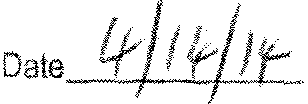 Date 4/14/14